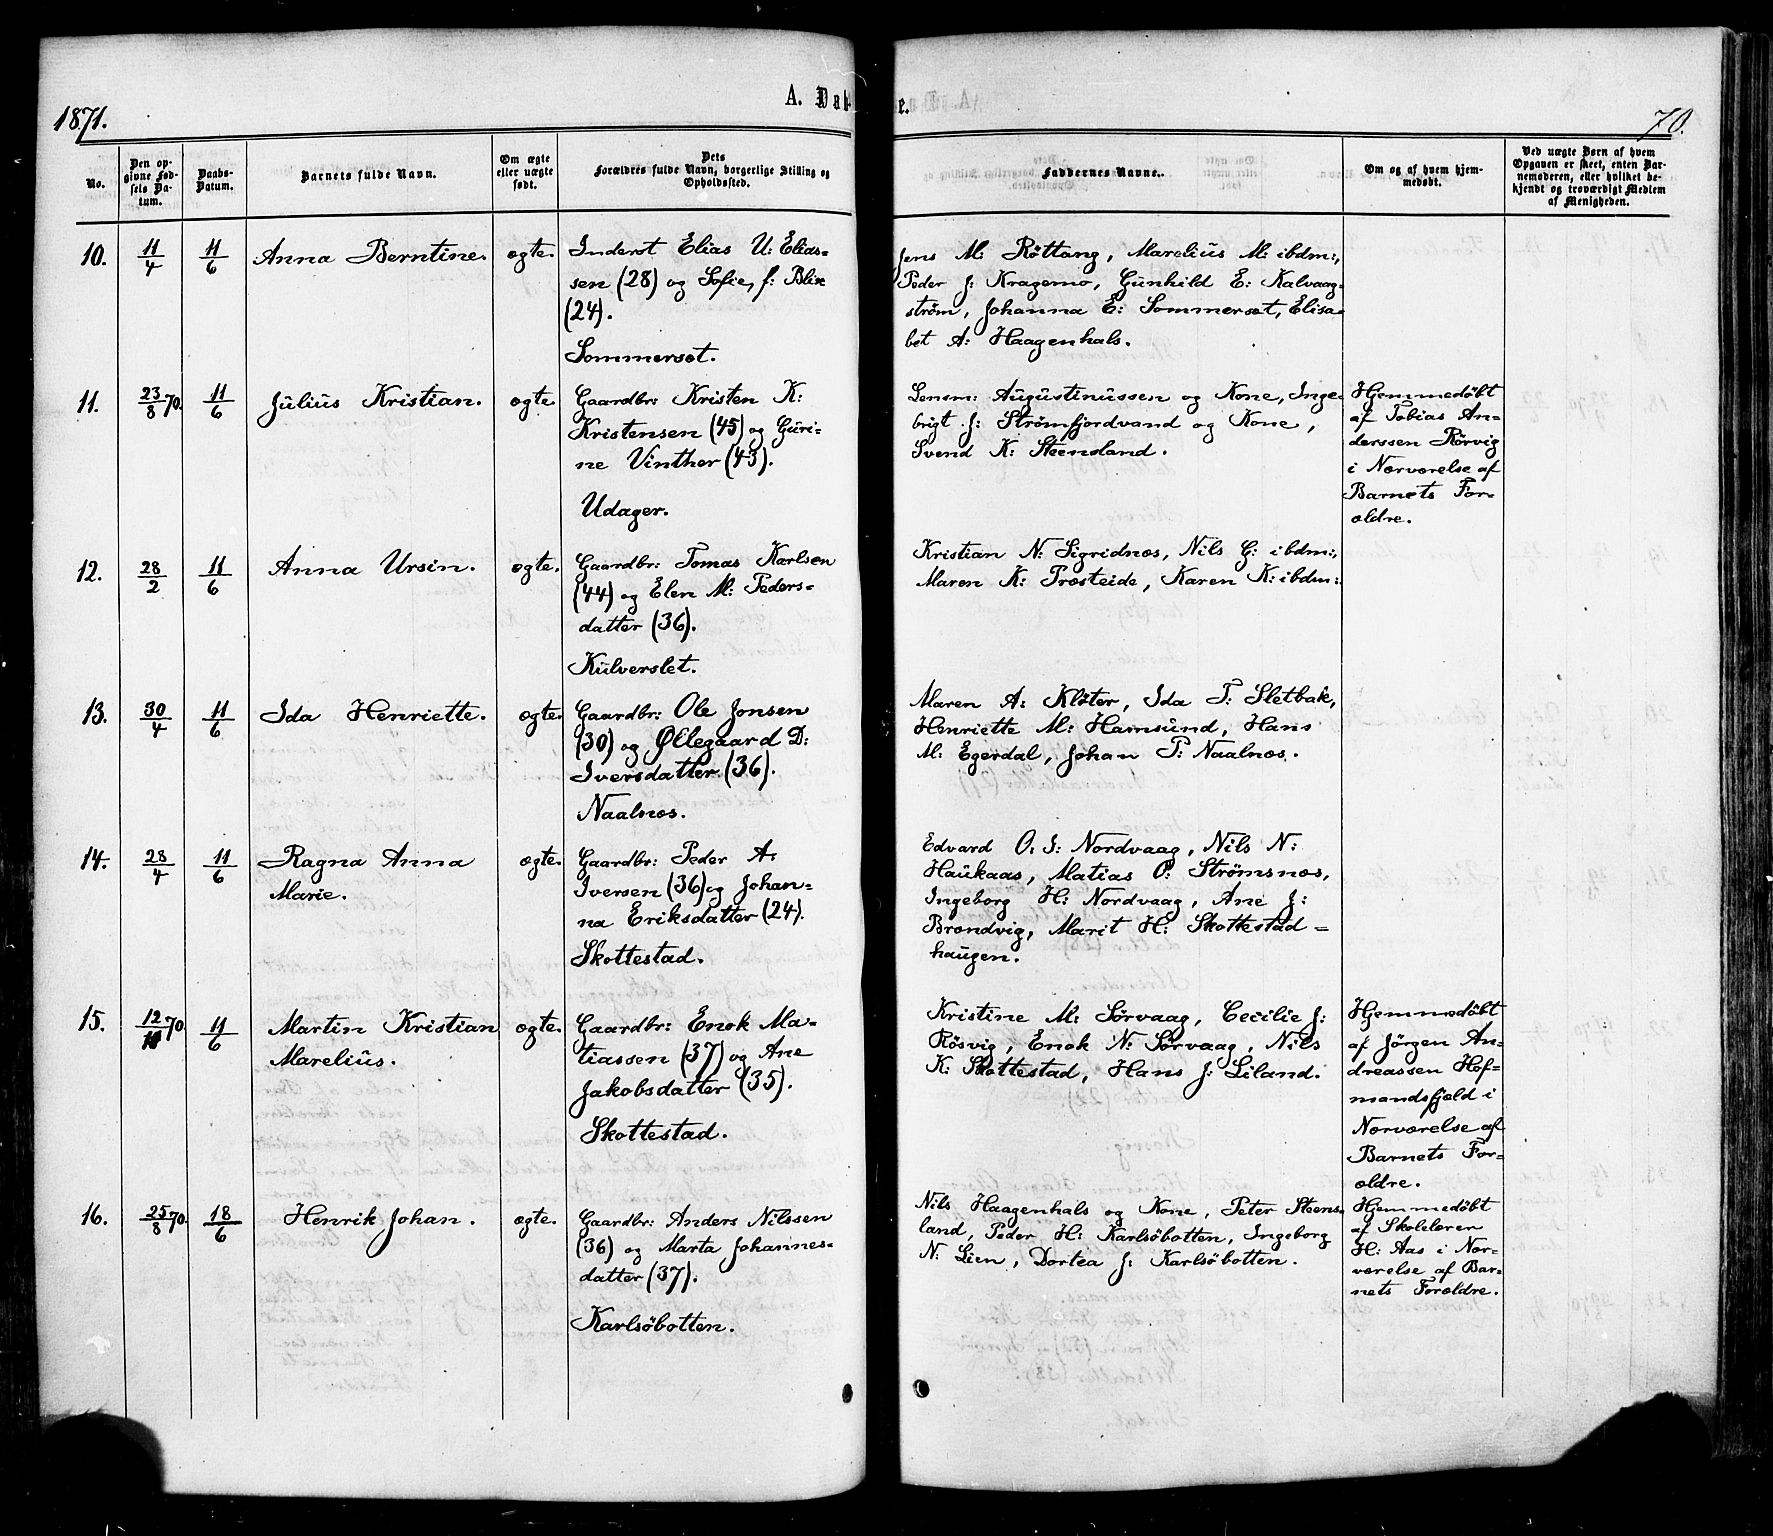 1871.
A. Døb
e.
70.
No.
Den op-
givne Fød-
sels Da-
tum.
Daabs-
Datum.
Barnets fulde Navn.
Om ægte
eller uægte
født.
Dets
Forældres fulde Navn, borgerlige Stilling og
Opholdssted.
Faddernes Navne.
Om og af hvem hjem-
medøbt.
Ved uægte Børn af hvem
Opgaven er skeet, enten Bar-
nemoderen, eller hvilket be-
kjendt og troværdigt Medlem
af Menigheden.
10.
11/4
11/6
Anna Berntine.
ægte.
Inderst Elias U: Elias-
sen (28) og Sofie, f: Blix
(24).
Sommerset.
Jens M: Röttang, Marelius M: ibdm:,
Peder J: Kragemo, Gunhild E: Kalvaag-
ström, Johanna E: Sommerset, Elisa-
bet A: Haagenhals.
11.
23/8 70.
11/6
Julius Kristian.
ægte.
Gaardbr: Kristen K:
Kristensen (45) og Guri-
ne Vinther (43).
Udager.
Lensm: Augustinussen og Kone, Inge-
brigt J: Strömfjordvand og Kone,
Svend K: Steensland.
Hjemmedöbt
af Tobias An-
derssen Rörvig
i Nærværelse af
Barnets For-
ældre.
12.
28/2
11/6
Anna Ursin.
ægte.
Gaardbr: Tomas Karlsen
(44) og Elen M: Peders-
datter (36).
Kulverslet.
Kristian N: Sigridnæs, Nils G: ibdm:,
Maren K: Præsteide, Karen K: ibdm:
13.
30/4
11/6
Ida Henriette.
ægte.
Gaardbr: Ole Jonsen
(30) og Øllegaard D:
Iversdatter (36).
Naalnæs.
Maren A: Klöter, Ida T: Sletbak,
Henriette M: Hamsund, Hans
M: Egerdal, Johan P: Naalnæs.
14.
28/4
11/6
Ragna Anna
Marie.
ægte.
Gaardbr: Peder A:
Iversen (36) og Johan-
na Eriksdatter (24).
Skottestad.
Edvard O: I: Nordvaag, Nils N:
Haukaas, Matias P: Strömsnæs,
Ingeborg H: Nordvaag, Ane J:
Brændvig, Marit H: Skottestad-
haugen.
15.
70.
11/6
Martin Kristian
Marelius.
ægte.
Gaardbr: Enok Ma-
tiassen (37) og Ane
Jakobsdatter (35).
Skottestad.
Kristine M: Sörvaag, Cecilie J:
Rösvig, Enok N: Sörvaag, Nils
K: Skottestad, Hans J: Liland.
Hjemmedöbt
af Jörgen An-
dreassen Hof-
mandsfjeld i
Nærværelse af
Barnets For-
ældre.
16.
25/8 70.
18/6
Henrik Johan.
ægte.
Gaardbr: Anders Nilssen
(36) og Marta Johannes-
datter (37).
Karlsöbotten.
Nils Haagenhals og Kone, Peter Steens-
land, Peder H: Karlsöbotten, Ingeborg
N: Lien, Dortea J: Karlsöbotten.
Hjemmedöbt
af Skolelærer
H: Aas i Nær-
værelse af Bar-
nets Forældre.